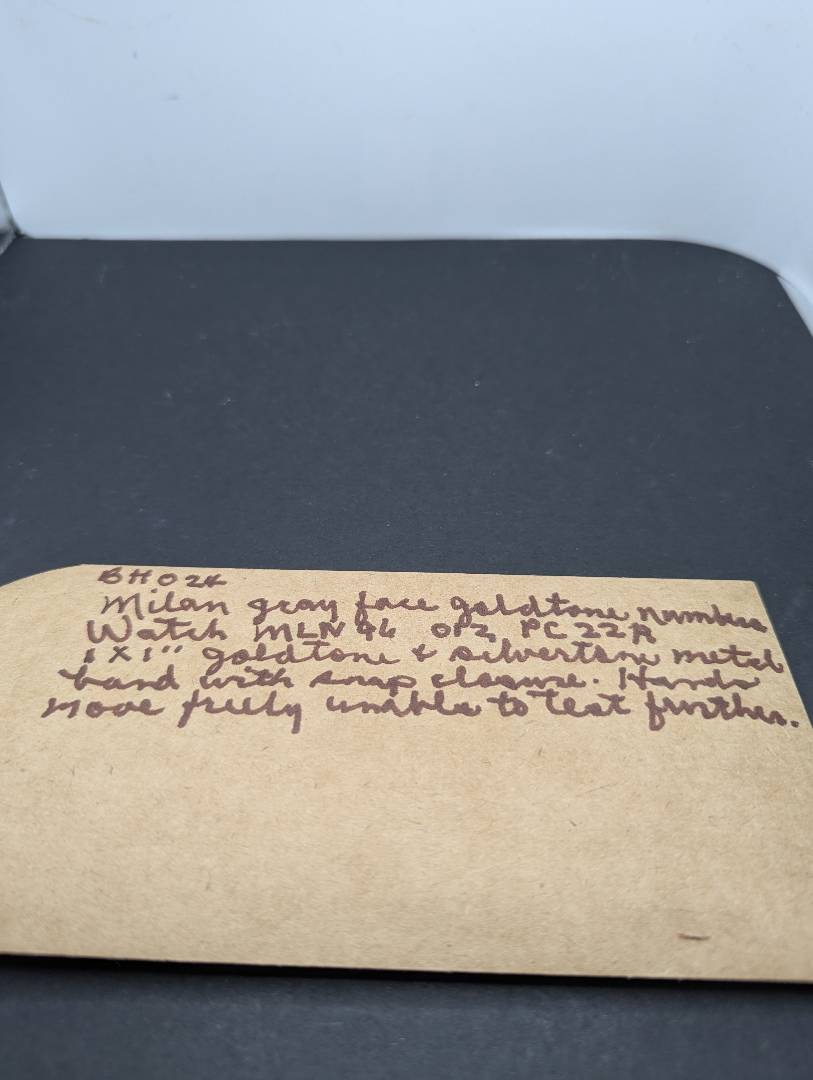 BH024
Milan gray face goldtone numbers
Watch MLN 46 OPZ PC22A
1 X 1" goldtone & silvertone metal
band with snap closure. Hands
move freely unable to test further.